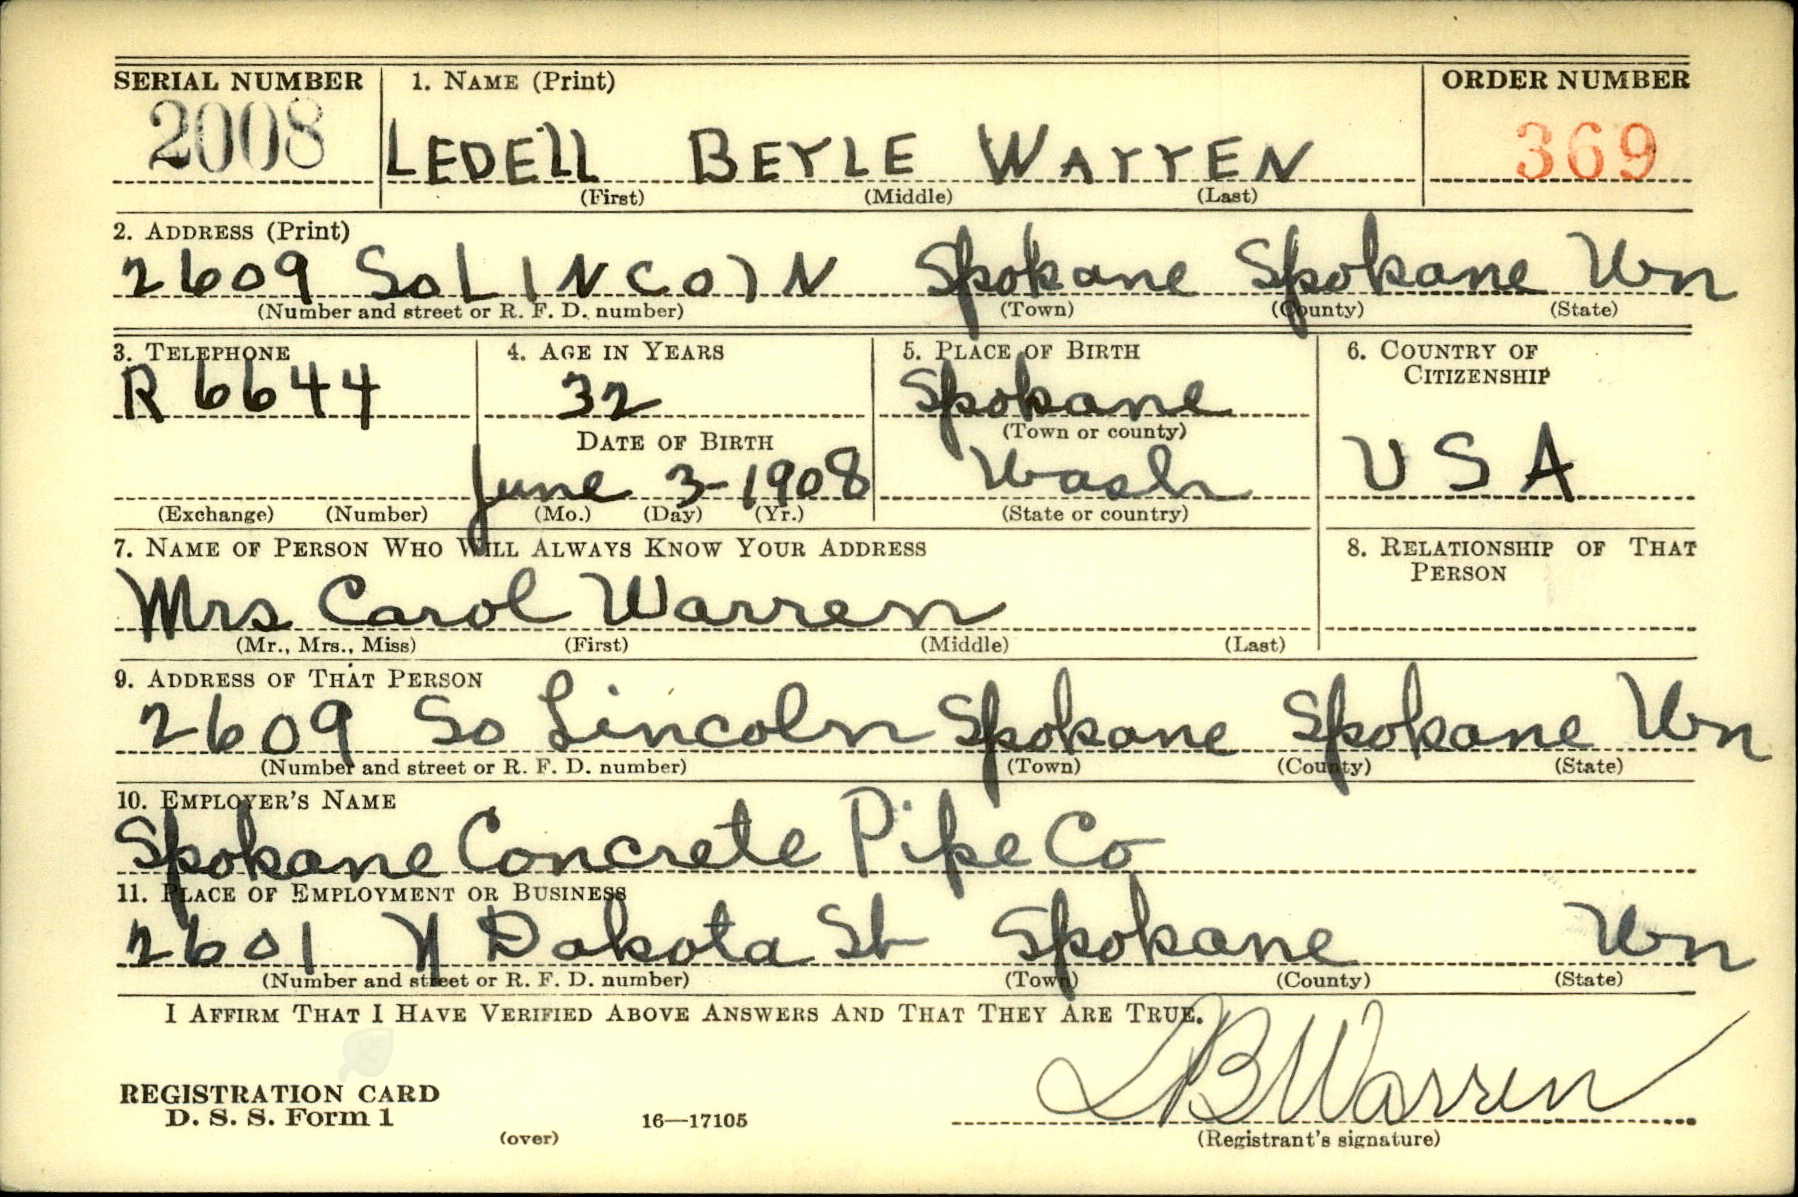 SERIAL NUMBER 1. NAME (Print) ORDER NUMBER
2008 LEDEll BEYLE WArrEN 369
(First) (Middle) (Last)
2. ADDRESS (Print)
2609 So LINColN Spokane Spokane Wn
(Number and street or R. F. D. number) (Town) (County) (State)
3. TELEPHONE 4. AGE IN YEARS 5. PLACE OF BIRTH 6. COUNTRY OF CITIZENSHIP
R 6644 32 Spokane
(Town or county)
DATE OF BIRTH
June 3-1908 Wash USA
(Exchange) (Number) (Mo.) (Day) (Yr.) (State or country)
7. NAME OF PERSON WHO WILL ALWAYS KNOW YOUR ADDRESS 8. RELATIONSHIP OF THAT PERSON
Mrs Carol Warren
(Mr., Mrs., Miss) (First) (Middle) (Last)
9. ADDRESS OF THAT PERSON
2609 So Lincoln Spokane Spokane Wn
(Number and street or R. F. D. number) (Town) (County) (State)
10. EMPLOYER'S NAME
Spokane Concrete Pipe Co
11. PLACE OF EMPLOYMENT OR BUSINESS
2601 N Dakota St Spokane Wn
(Number and street or R. F. D. number) (Town) (County) (State)
I AFFIRM THAT I HAVE VERIFIED ABOVE ANSWERS AND THAT THEY ARE TRUE.
LBWarren
REGISTRATION CARD
D. S. S. Form 1 16—17105
(over) (Registrant's signature)